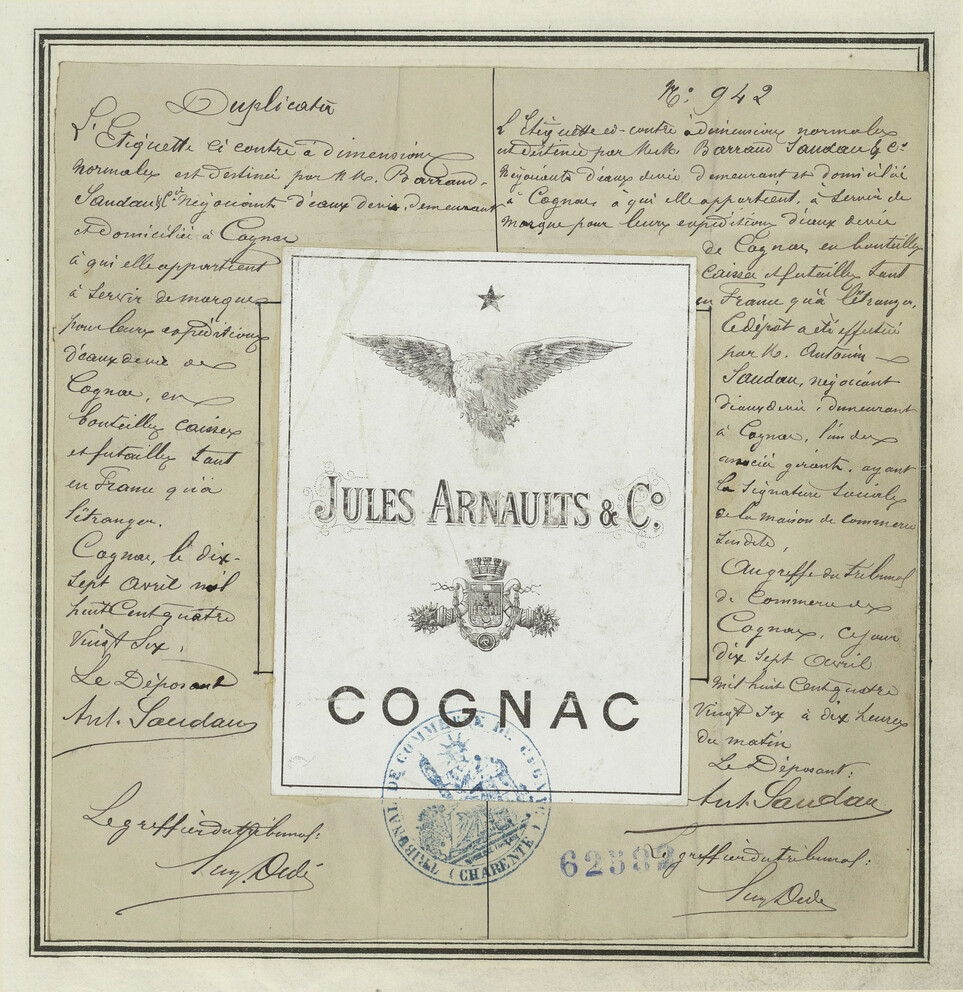 Duplicata
L'Etiquette ci contre à dimensions
normales est destinée par MM. Barraud-
Saudau & Cie Négociants d'eaux de vie, demeurant
et domiciliés à Cognac
à qui elle appartient
à servir de marque
pour leurs expéditions
d'eaux de vie de
Cognac, en
bouteilles caisses
et futailles tant
en France qu'à
l'étranger.
Cognac, le dix-
sept avril mil
huit cent quatre
vingt six.
Le Déposant
Ant. Saudau
Le greffier du tribunal:
N° 942
L'Etiquette ci-contre à dimensions normales
est destinée par M.M. Barraud Saudau & Cie
Négociants d'eaux de vie demeurant et domiciliés
à Cognac à qui elle appartient, à servir de
marque pour leurs expéditions d'eaux de vie
de Cognac en bouteilles
caisses et futailles tant
en France qu'à l'étranger.
Le dépôt a été effectué
par M. Antonin
Saudau, négociant
d'eaux de vie, demeurant
à Cognac, l'un des
associés gérants, ayant
la signature sociale
de la maison de commerce
susdite,
Au greffe du tribunal
de Commerce de
Cognac, ce jour
dix sept avril
mil huit cent quatre
vingt six à dix heures
du matin
Le Déposant:
Ant. Saudau
Le greffier du tribunal:
JULES ARNAULTS & Co.
COGNAC
TRIBUNAL DE COMMERCE DE COGNAC (CHARENTE)